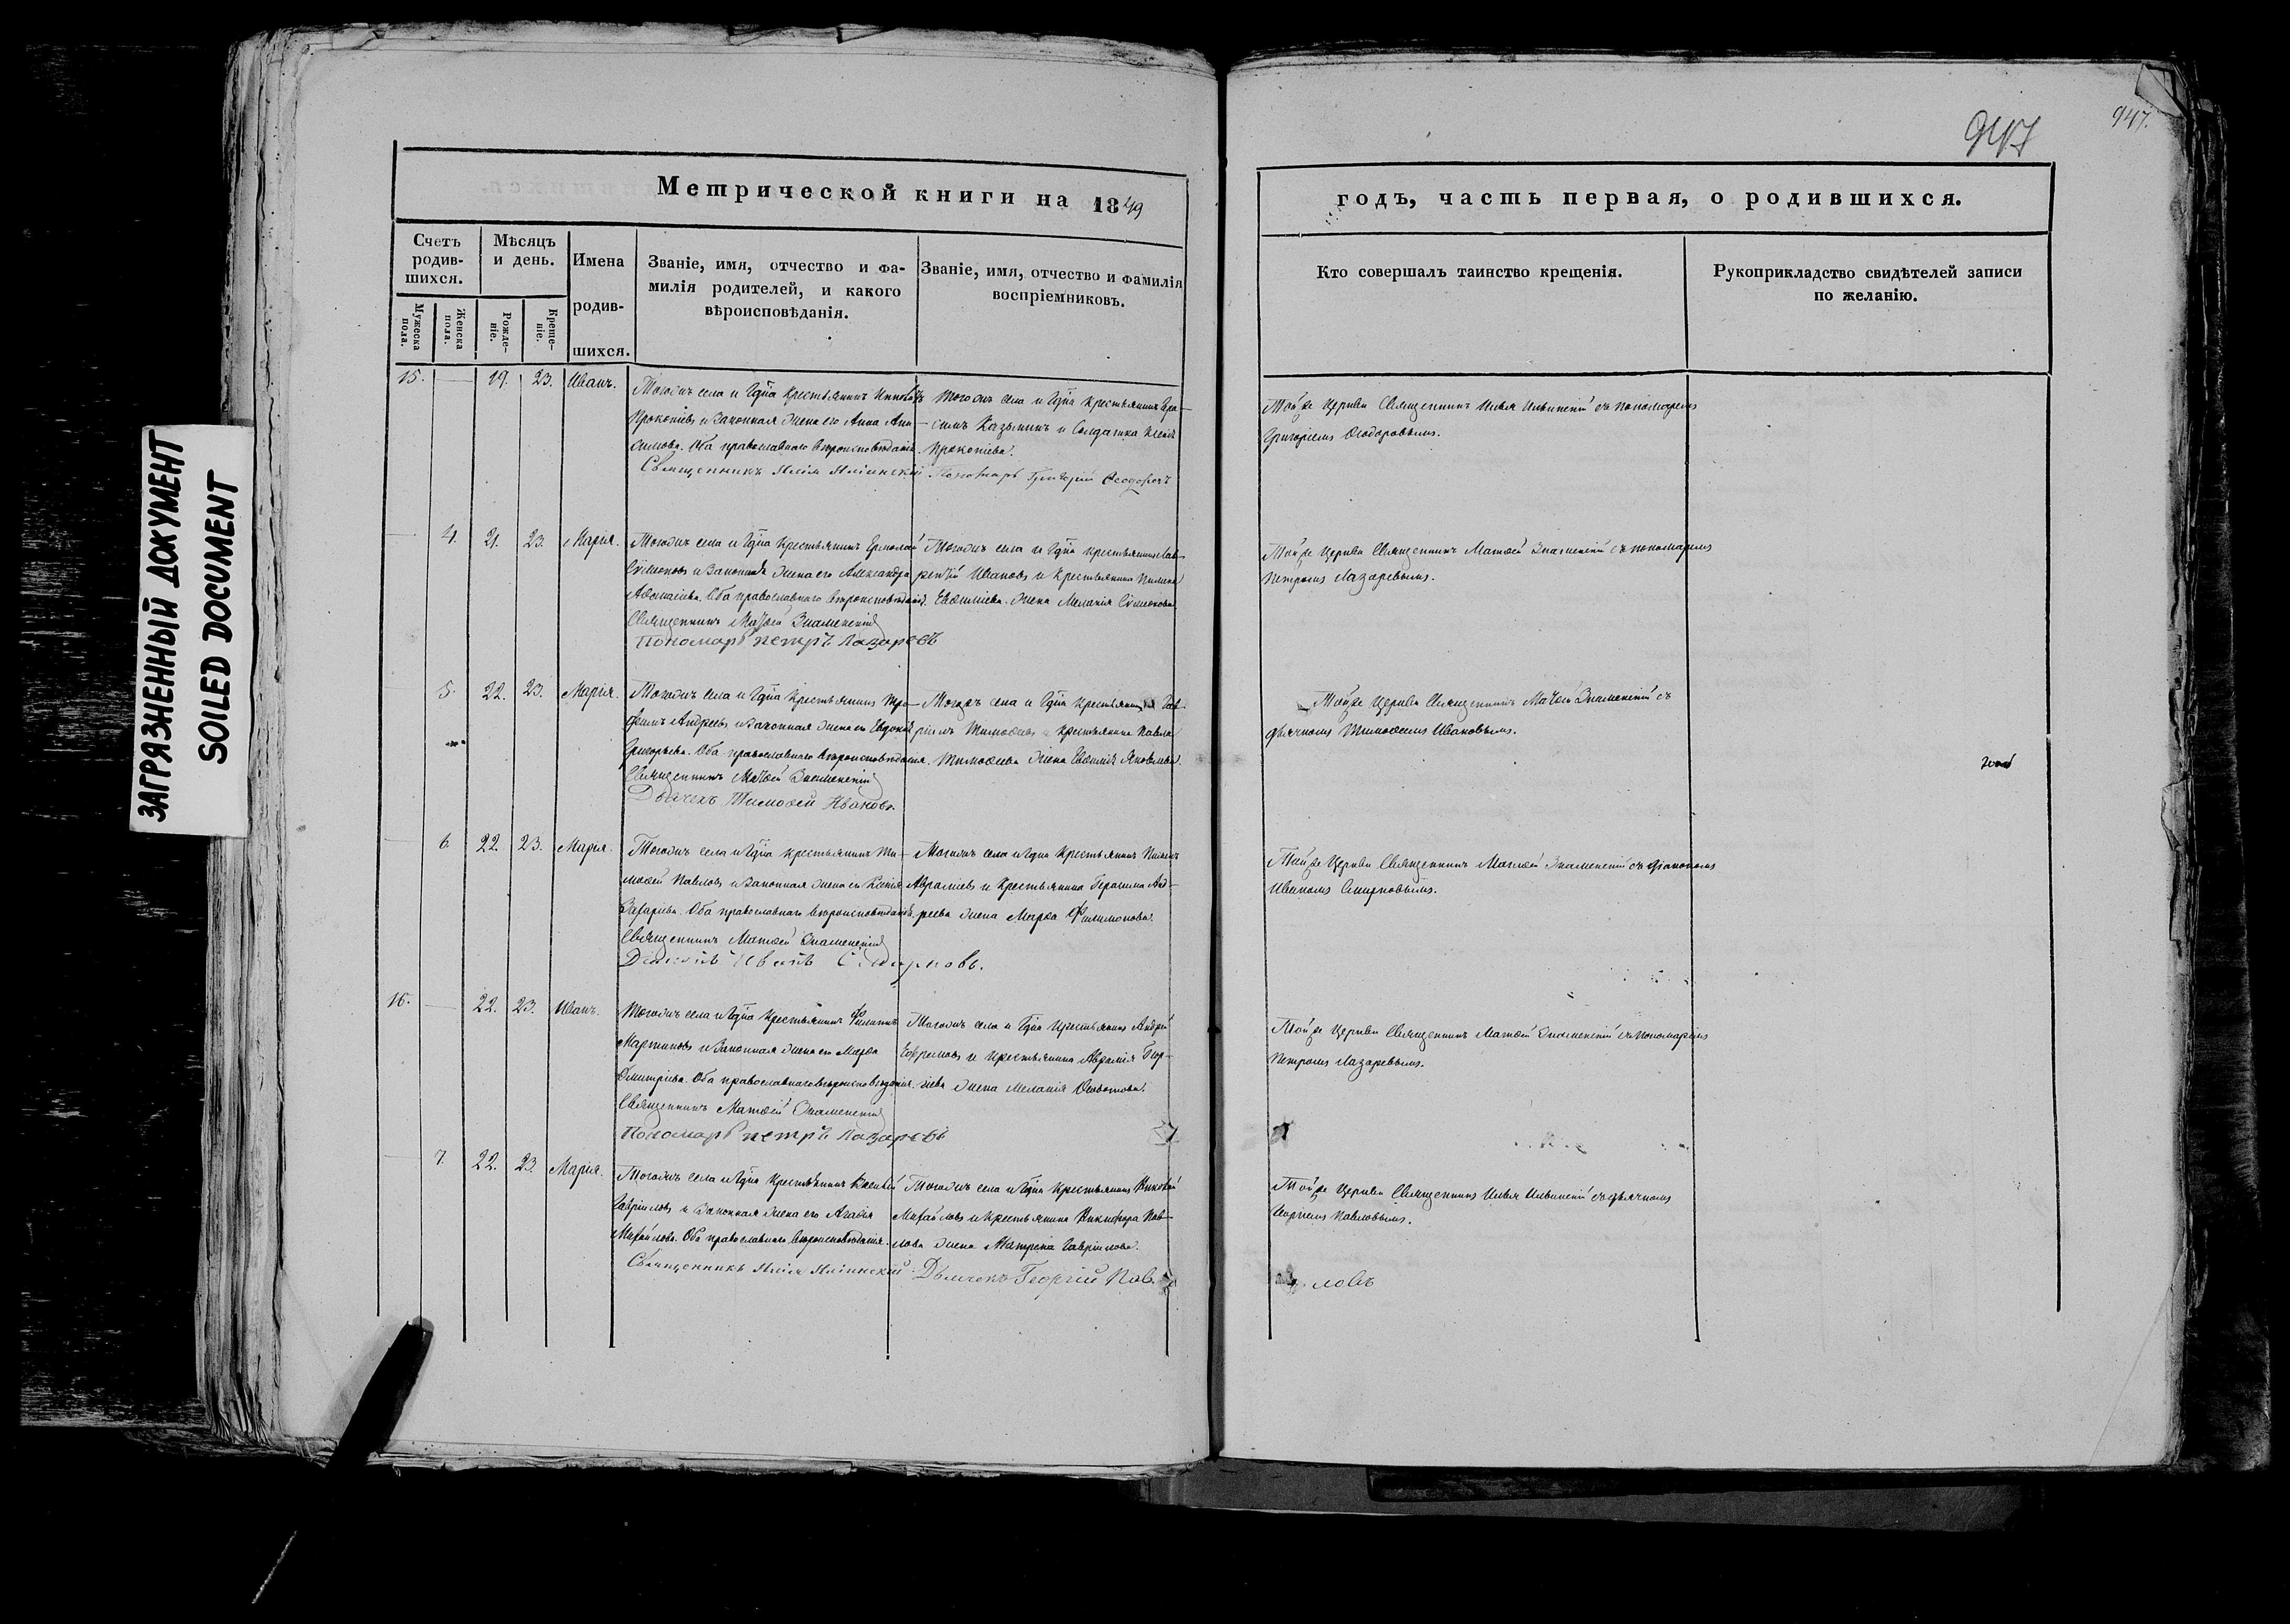 ЗАГРЯЗНЕННЫЙ ДОКУМЕНТ
SOILED DOCUMENT
947
947.
Метрической книги на 1849
годъ, часть первая, о родившихся.
Счетъ родив-шихся.
Мѣсяцъ и день.
Имена родив-шихся.
Званіе, имя, отчество и фа-
милія родителей, и какого
вѣроисповѣданія.
Званіе, имя, отчество и фамилія
воспріемниковъ.
Кто совершалъ таинство крещенія.
Рукоприкладство свидѣтелей записи
по желанію.
Мужеска пола.
Женска пола.
Рожде-ніе.
Креще-ніе.
15. 19. 23. Иванъ.
Тогожъ села и Гдна Крестьянинъ
Прокопіевъ и Законная жена его Анна Ани-
симова. Оба православнаго вѣроисповѣданія.
Священникъ Илія Ильинскій Пономарь Григорій Ѳеодоровъ
Тогожъ села и Гдна Крестьянинъ Гера-
симъ Казьминъ и Солдатка Ксенія
Прокопіева.
Той же Церкви Священникъ Илья Ильинскій съ пономаремъ
Григоріемъ Ѳеодоровымъ.
4. 21. 23. Марія.
Тогожъ села и Гдна Крестьянинъ Ермолай
Сѵмеоновъ и Законная жена его Александра
Аѳонасіева. Оба православнаго вѣроисповѣданія.
Священникъ Матѳей Знаменскій
Пономарь Петръ Лазаревъ
Тогожъ села и Гдна крестьянинъ Лав-
рентій Ивановъ и Крестьянина Пимена
Евѳиміева жена Меланія Сѵмеонова.
Той же Церкви Священникъ Матѳей Знаменскій съ пономаремъ
Петромъ Лазаревымъ.
5. 22. 23. Марія.
Тогожъ села и Гдна Крестьянинъ Тро-
фимъ Андреевъ и Законная жена его Евдокія
Григорьева. Оба православнаго вѣроисповѣданія.
Священникъ Матѳей Знаменскій
Дьячекъ Тимоѳей Ивановъ.
Тогожъ села и Гдна Крестьянинъ Гав-
ріилъ Тимоѳеевъ и крестьянина Павла
Тимоѳеева жена Евѳимія Яковлева.
Той же Церкви Священникъ Матѳей Знаменскій съ
дьячкомъ Тимоѳеемъ Ивановымъ.
6. 22. 23. Марія.
Тогожъ села и Гдна крестьянинъ Ти-
моѳей Павловъ и Законная жена его Ксенія
Захаріева. Оба православнаго вѣроисповѣданія.
Священникъ Матѳей Знаменскій
Діаконъ Иванъ Смирновъ.
Тогожъ села и Гдна Крестьянинъ Пименъ
Авраміевъ и Крестьянина Герасима Анд-
реева жена Марѳа Филимонова.
Той же Церкви Священникъ Матѳей Знаменскій съ діакономъ
Иваномъ Смирновымъ.
16. 22. 23. Иванъ.
Тогожъ села и Гдна Крестьянинъ Филиппъ
Мартиновъ и Законная жена его Марѳа
Димитріева. Оба православнаго вѣроисповѣданія.
Священникъ Матѳей Знаменскій
Пономарь Петръ Лазаревъ
Тогожъ села и Гдна Крестьянинъ Андрей
Ефремовъ и крестьянина Аврамія Геор-
гіева жена Меланія
Той же Церкви Священникъ Матѳей Знаменскій съ пономаремъ
Петромъ Лазаревымъ.
7. 22. 23. Марія.
Тогожъ села и Гдна Крестьянинъ
Гавріиловъ и Законная жена его Агаѳія
Михайлова. Оба православнаго вѣроисповѣданія.
Священникъ Илія Ильинскій. Дьячекъ Георгій Пав-
ловъ
Тогожъ села и Гдна Крестьянинъ
Михайловъ и крестьянина Никифора Пав-
лова жена Матрена Гавріилова.
Той же Церкви Священникъ Илья Ильинскій съ дьячкомъ
Георгіемъ Павловымъ.